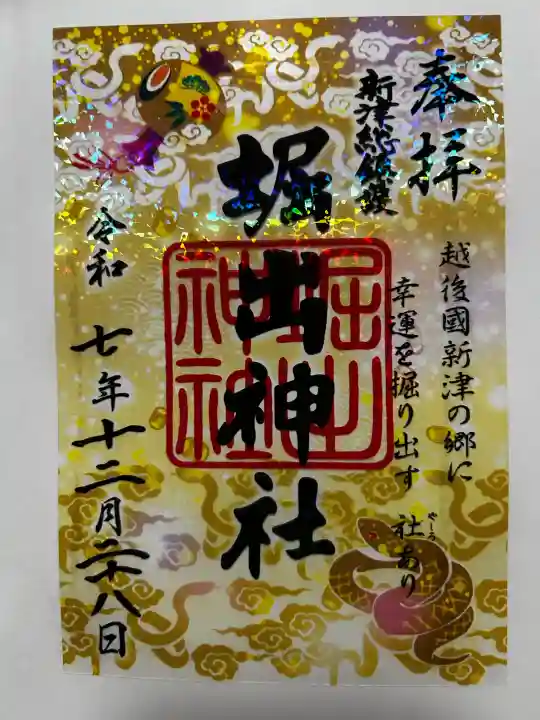 奉拝
新津総鎮護
越後國新津の郷に
幸運を掘り出す
社あり
やしろ
堀出神社
令和七年十二月二十八日